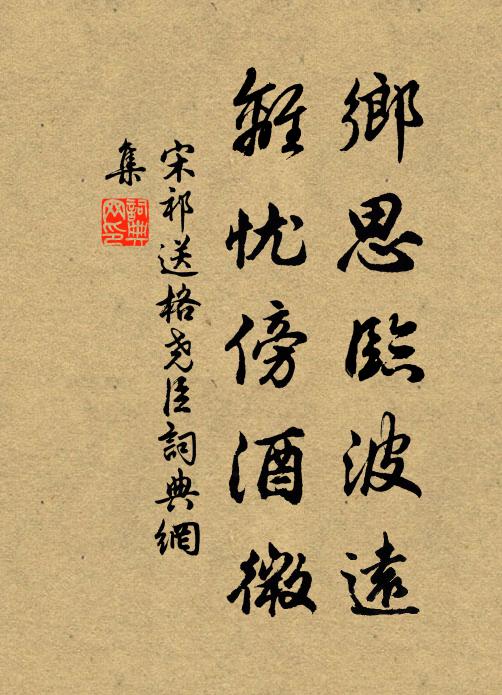 鄉思臨波遠
離忧傍酒微
宋祁送格尧臣詞典網
集
詞典
网印